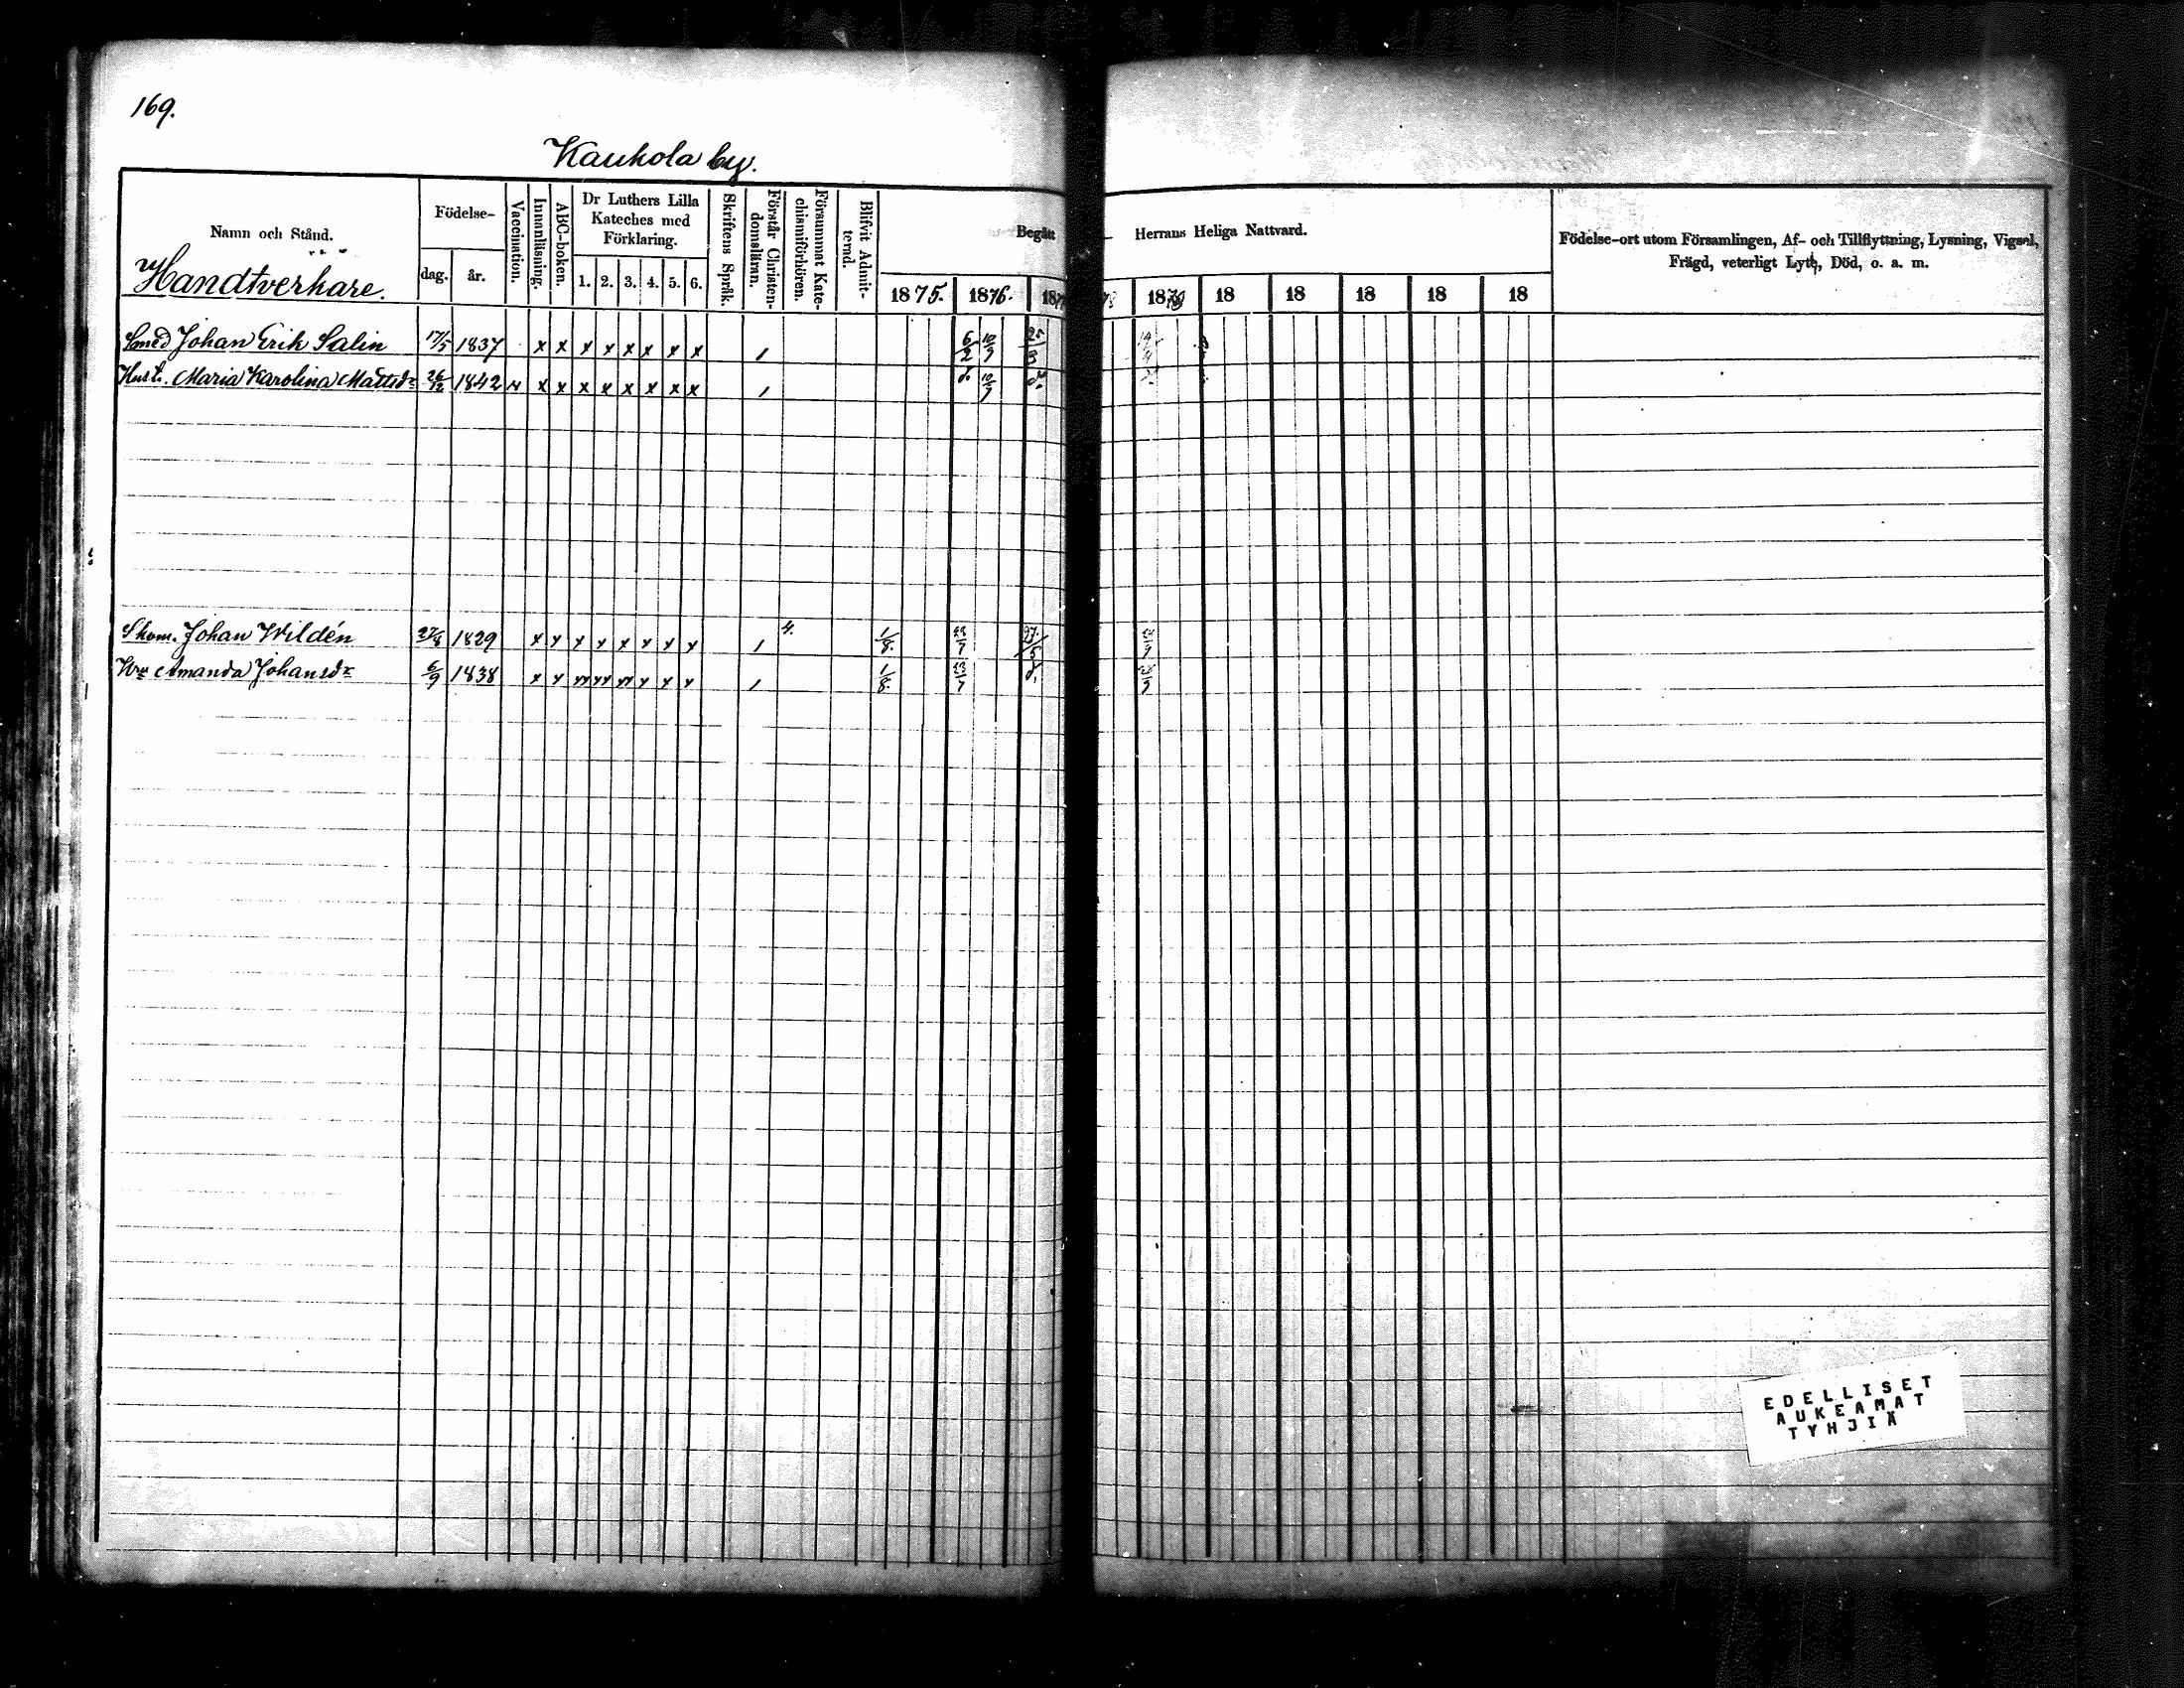 169.
Kaukola by.
Namn och Stånd.
Handtverkare.
Födelse-
dag. år.
Vaccination.
Innanläsning.
ABC-boken.
Dr Luthers Lilla
Kateches med
Förklaring.
1. 2. 3. 4. 5. 6.
Skriftens Språk.
Förstår Christen-
domsläran.
Försummat Kate-
chismiförhören.
Blifvit Admit-
terad.
Begått Herrans Heliga Nattvard.
1875. 1876. 18 18 18 18 18 18
Födelse-ort utom Församlingen, Af- och Tillflyttning, Lysning, Vigsel,
Frägd, veterligt Lyte, Död, o. a. m.
Smed Johan Erik Salin 17/5 1837 x x x x x x x x / 6/2 10/9
Hust. Maria Karolina Mattsdr 26/12 1842 x x x x x x x x / d. 10/9 d.
Skom. Johan Wildén 27/8 1829 x x x x x x x x / 4. 1/8. 23/7 27/5
Hru Amanda Johansdr 6/9 1838 x x xx xx xx x x x / 1/8. 23/7 d.
EDELLISET
AUKEAMAT
TYHJIÄ